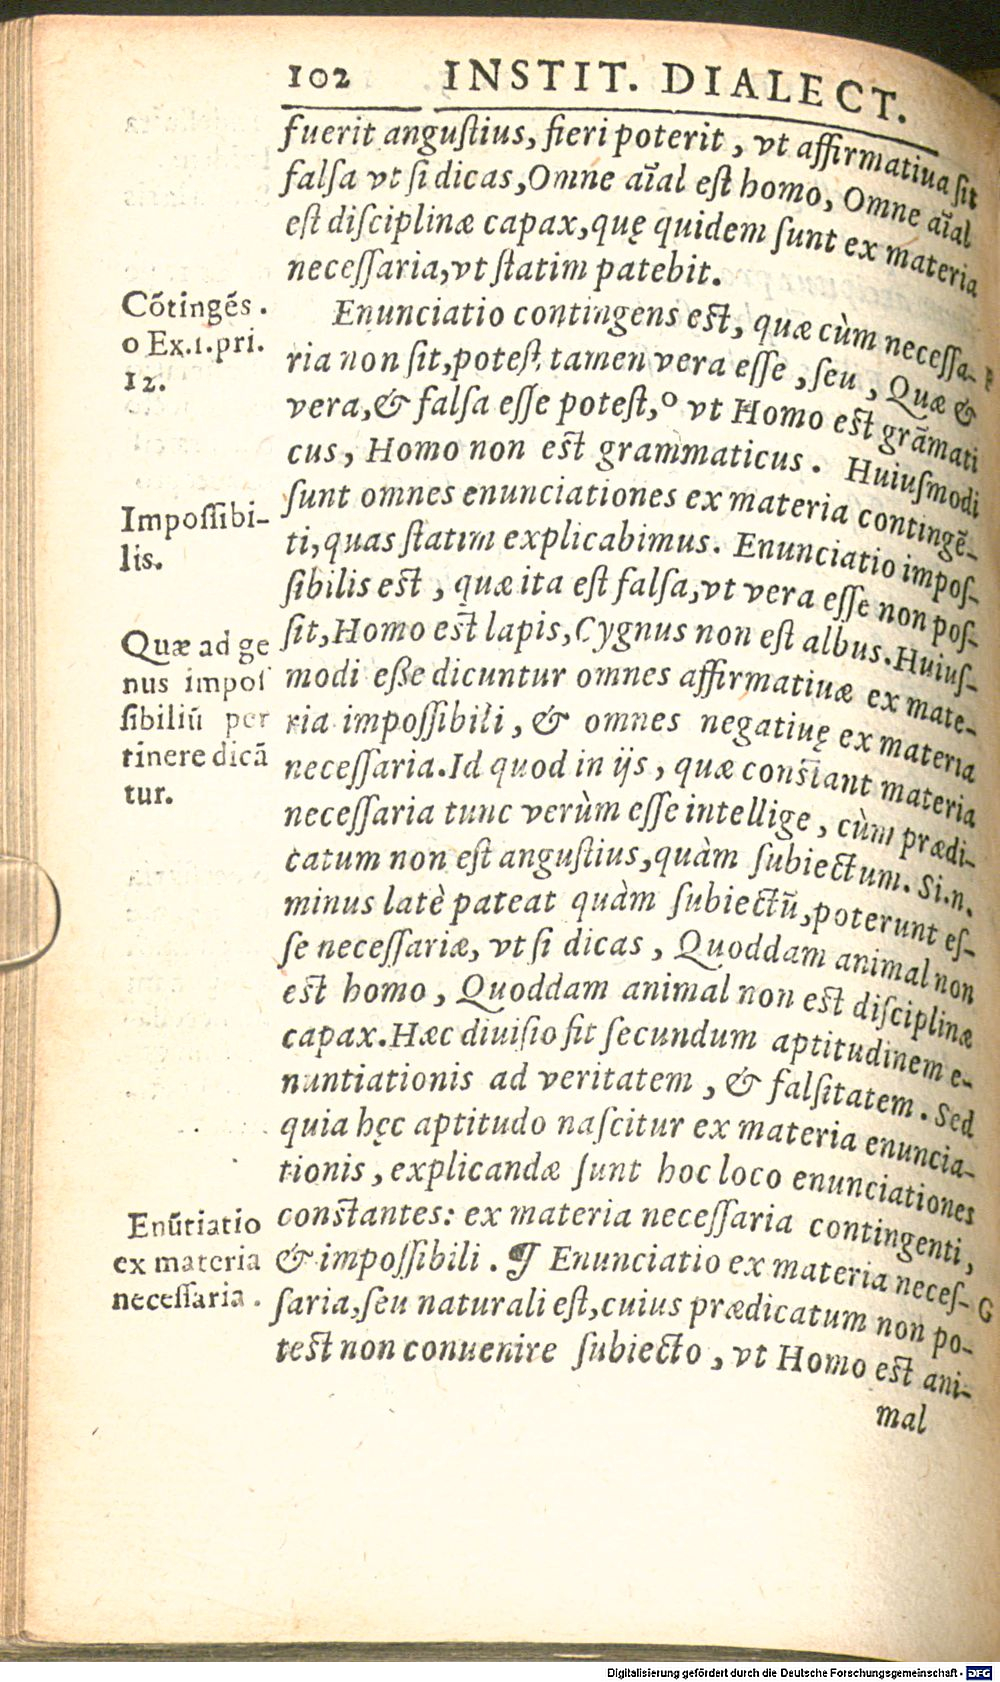 102 INSTIT. DIALECT.
fuerit anguſtius, fieri poterit, vt affirmatiua ſit
falſa vt ſi dicas, Omne aĩal eſt homo, Omne aĩal
eſt diſciplinæ capax, quę quidem ſunt ex materia
neceſſaria, vt ſtatim patebit.
Cõtingẽs.
o Ex.1.pri.
12.
Enunciatio contingens eſt, quæ cùm neceſſa-
ria non ſit, poteſt tamen vera eſſe, ſeu, Quæ &
vera, & falſa eſſe poteſt, o vt Homo eſt grãmati
cus, Homo non eſt grammaticus. Huiuſmodi
ſunt omnes enunciationes ex materia contingẽ-
ti, quas ſtatim explicabimus. Enunciatio impoſ-
Impoſſibi-
lis.
ſibilis eſt, quæ ita eſt falſa, vt vera eſſe non poſ-
ſit, Homo eſt lapis, Cygnus non eſt albus. Huiuſ-
Quæ ad ge
nus impoſ
ſibiliũ per
tinere dicã
tur.
modi eße dicuntur omnes affirmatiuæ ex mate-
ria impoſſibili, & omnes negatiuę ex materia
neceſſaria. Id quod in ijs, quæ conſtant materia
neceſſaria tunc verùm eſſe intellige, cùm prædi-
catum non eſt anguſtius, quàm ſubiectum. Si.n.
minus latè pateat quàm ſubiectũ, poterunt eſ-
ſe neceſſariæ, vt ſi dicas, Quoddam animal non
eſt homo, Quoddam animal non eſt diſciplinæ
capax. Hæc diuiſio fit ſecundum aptitudinem e-
nuntiationis ad veritatem, & falſitatem. Sed
quia hęc aptitudo naſcitur ex materia enuncia-
tionis, explicandæ ſunt hoc loco enunciationes
conſtantes: ex materia neceſſaria contingenti,
& impoſſibili. ¶ Enunciatio ex materia neceſ- G
Enũtiatio
ex materia
neceſſaria.
ſaria, ſeu naturali eſt, cuius prædicatum non po-
teſt non conuenire ſubiecto, vt Homo eſt ani-
mal
Digitalisierung gefördert durch die Deutsche Forschungsgemeinschaft - DFG